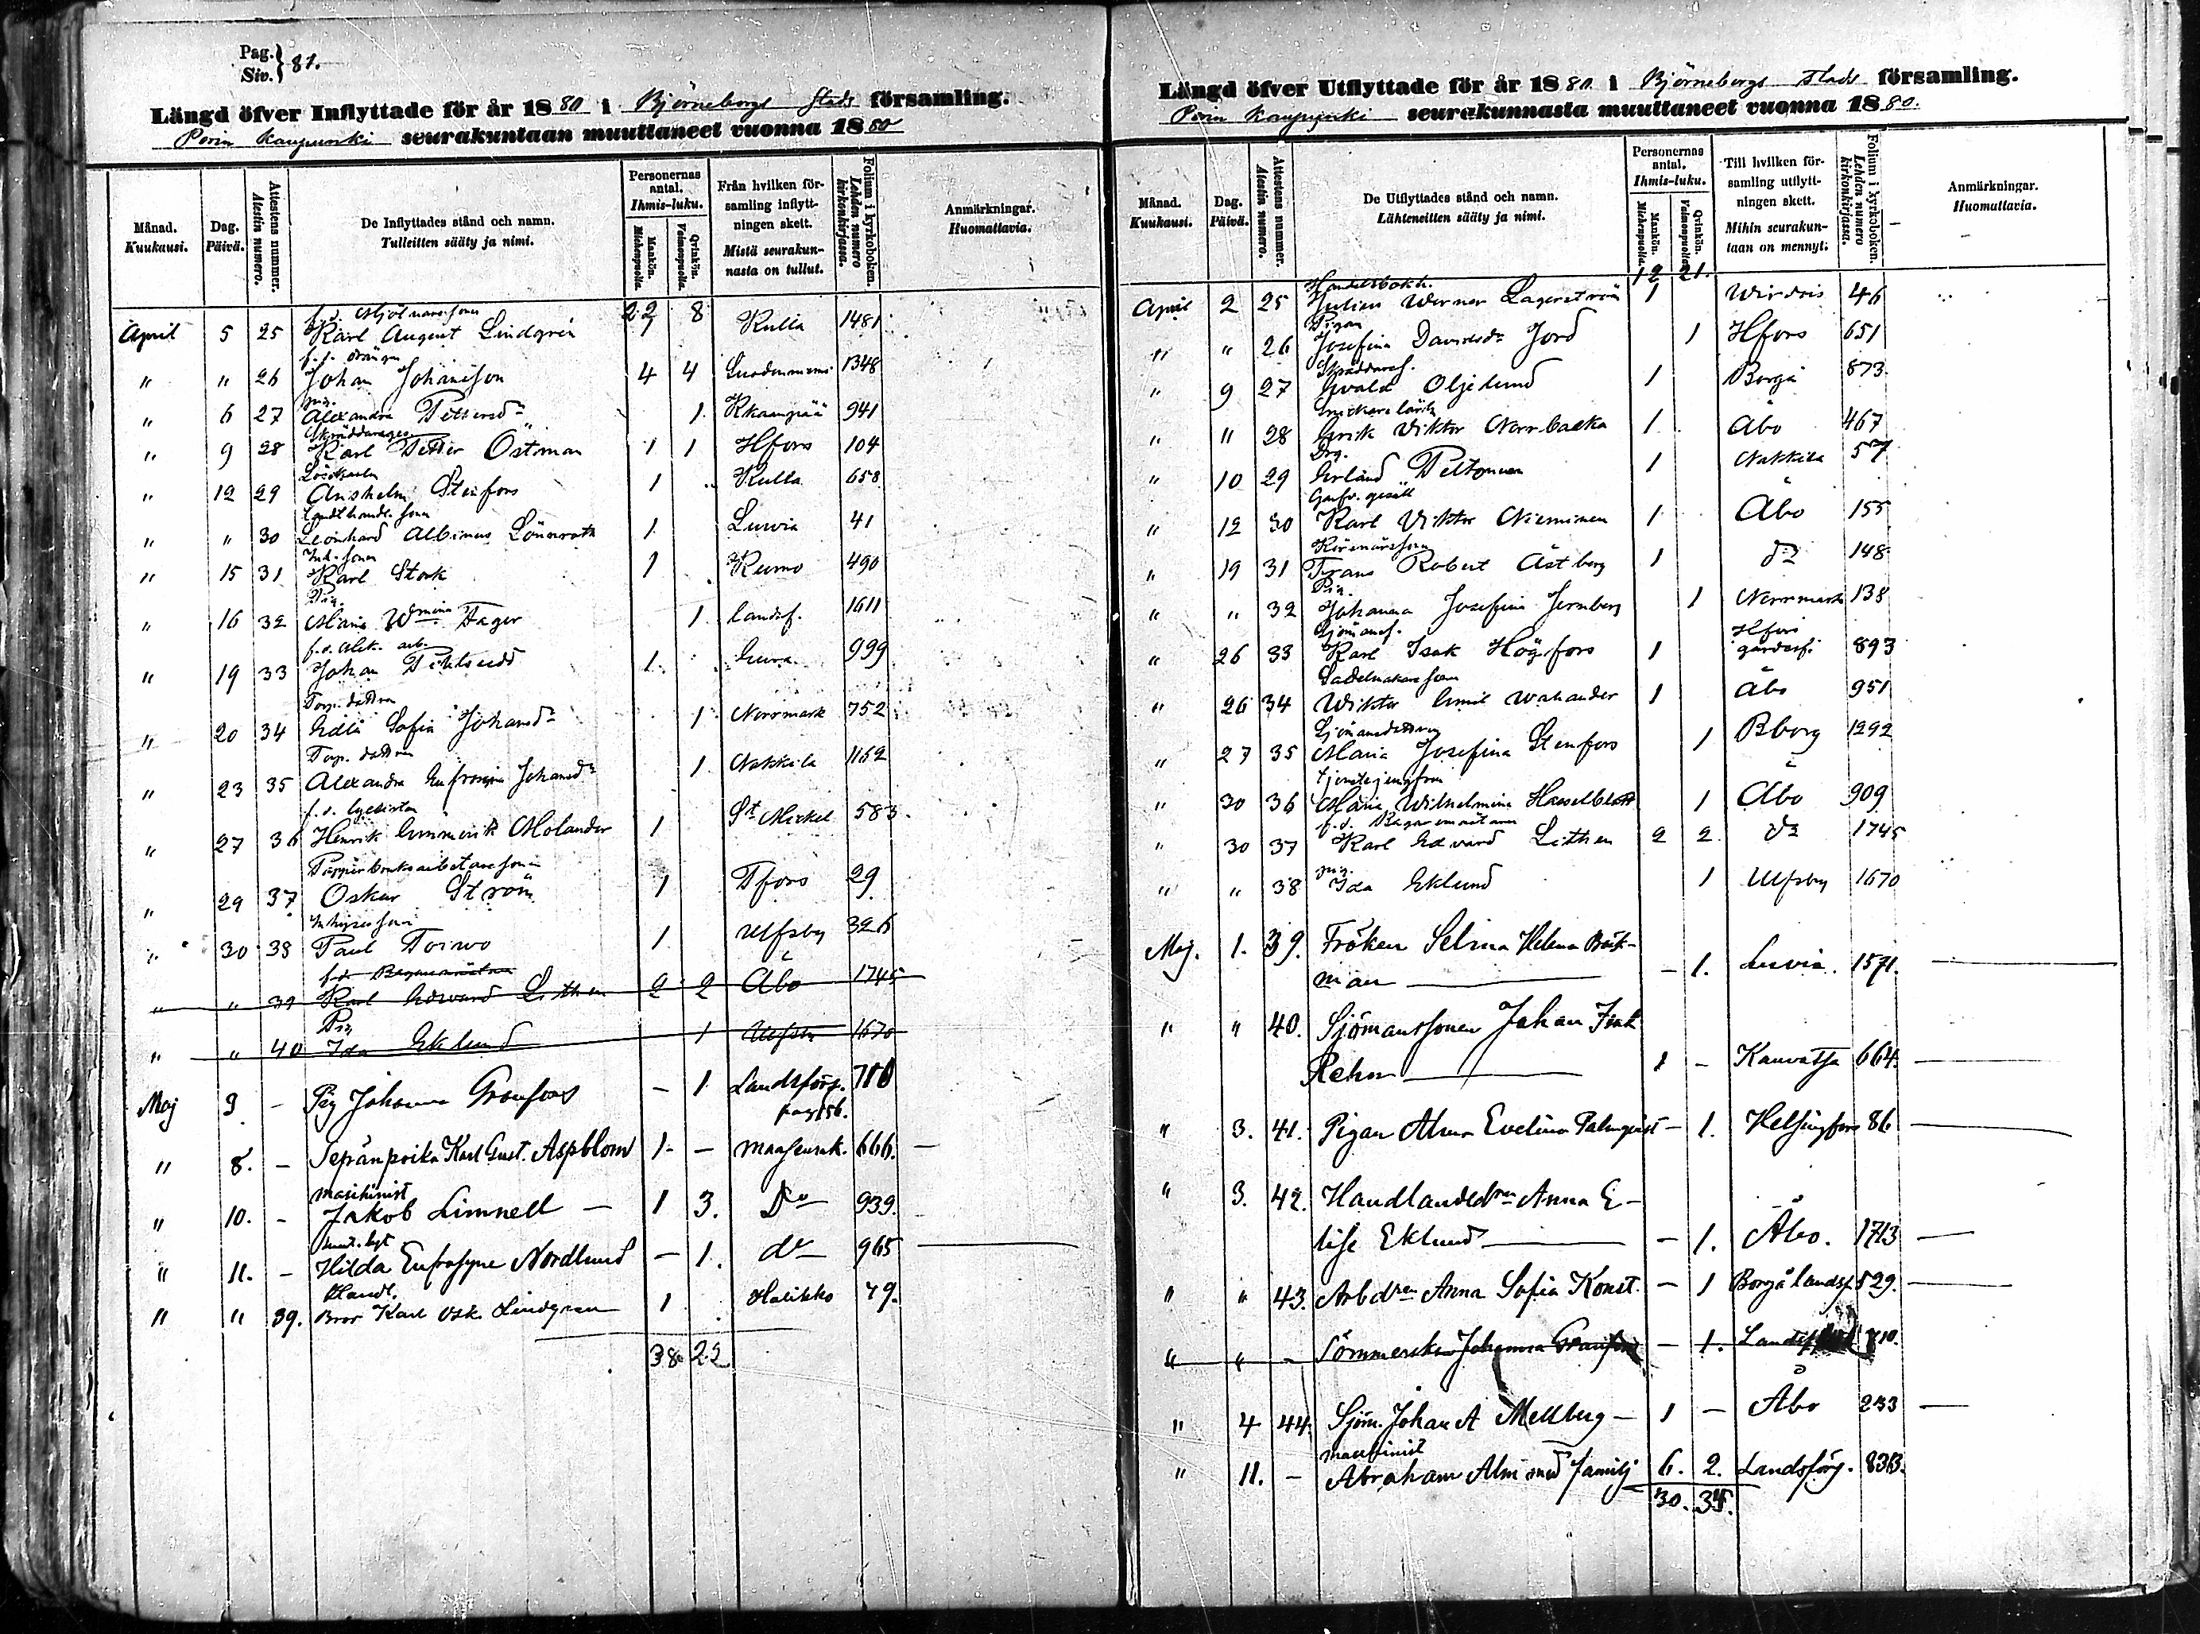 Pag. } 81.
Siv.
Längd öfver Inflyttade för år 1880 i Björneborgs Stads församling.
Porin kaupunki seurakuntaan muuttaneet vuonna 1880
Månad. Kuukausi.
Dag. Päivä.
Attestens nummer. Atestin numero.
De Inflyttades stånd och namn. Tulleitten sääty ja nimi.
Personernas antal. Ihmis-luku.
Mankön. Miehenpuolia.
Qvinkön. Vaimonpuolia.
Från hvilken församling inflyttningen skett. Mistä seurakunnasta on tullut.
Folium i kyrkoboken. Lehden numero kirkonkirjassa.
Anmärkningar. Huomattavia.
22 8
f.d. Mjölnaresonen
April 5 25 Karl August Lindgrén 1 Kulla 1481
f.d. drängen
" " 26 Johan Johansson 4 4 Suodenniemi 1348
pig.
" 6 27 Alexandra Pettersdr 1 Kkaanpää 941
Skräddareges.
" 9 28 Karl Petter Östman 1 1 Hfors 104
Lösekarlen
" 12 29 Anshelm Stenfors 1 Kulla 658
Landthandl. sonen
" " 30 Leonhard Albinus Lönnroth 1 Luvia 41
Inh. sonen
" 15 31 Karl Stork 1 Kumo 490
Pig.
" 16 32 Maria Wmina Fager 1 Landsf. 1611
f.d. arb.
" 19 33 Johan 1 Eura 999
Torp. dottren
" 20 34 Edla Sofia Johansdr 1 Norrmark 752
Torp. dottren
" 23 35 Alexandra Eufrosyna Johansdr 1 Nakkila 1152
f.d.
" 27 36 Henrik Emmerik Molander 1 St Mickel 583
Pappersbruksarbetaresonen
" 29 37 Oskar Ström 1 Tfors 29
Inhysessonen
" 30 38 Paul Toiwo 1 Ulfsby 326
f.d. Bagaremästaren
" " 39 Karl Edward Lithen 2 2 Åbo 1745
Pig
" " 40 Ida Eklund 1 Ulfsby 1670
Maj 9 - Pig Johanna Granfors - 1 Landsförs. 710
pag 156.
" 8. - Sepänpoika Karl Gust. Aspblom 1 - maaseurak. 666. -
maschinist
" 10. - Jakob Limnell - 1 3. Do 939.
" 11. - Hilda Eufrosyne Nordlund - 1. do 965
Handl.
" " 39. Bror Karl Osk. Lindgren 1 Halikko 49.
38 22
Längd öfver Utflyttade för år 1880 i Björneborgs stads församling.
Porin kaupunki seurakunnasta muuttaneet vuonna 1880.
Månad. Kuukausi.
Dag. Päivä.
Attestens nummer. Atestin numero.
De Utflyttades stånd och namn. Lähteneitten sääty ja nimi.
Personernas antal. Ihmis-luku.
Mankön. Miehenpuolia.
Qvinkön. Vaimonpuolia.
Till hvilken församling utflyttningen skett. Mihin seurakuntaan on mennyt.
Folium i kyrkoboken. Lehden numero kirkonkirjassa.
Anmärkningar. Huomattavia.
12 21.
Handelsbokh.
April 2 25 Julius Werner Lagerström 1 Wirdois 46
Pigan
" " 26 Josefina Davidsdr Jord 1 Hfors 651
Skräddares.
" 9 27 Evald Oljelund 1 Borgå 873
" " 28 Erik Viktor Norrbacka 1 Åbo 467
Drg.
" 10 29 Erland Peltonen 1 Nakkila 57
Garfv. gesäll
" 12 30 Karl Viktor Nieminen 1 Åbo 155
" 19 31 Frans Robert Åstberg 1 do 148
Pig.
" " 32 Johanna Josefina Jernberg 1 Norrmark 138
Sjömans. Hfors
" 26 33 Karl Isak Högfors 1 893
Sadelmakaresonen
" 26 34 Wiktor Emil Wahander 1 Åbo 951
Sjömansdottren
" 27 35 Maria Josefina Stenfors 1 Bborg 1292
tjenstejungfrun
" 30 36 Maria Wilhelmina Hasselblatt 1 Åbo 909
f.d. Bagaremästaren
" 30 37 Karl Edvard Lithen 2 2 do 1745
pig.
" " 38 Ida Eklund 1 Ulfsby 1670
Maj. 1. 39. Fröken Selma Helena Björk-
man - 1. Luvia. 1571.
" " 40. Sjömanssonen Johan Isak
Rehn 1 - Kauvatsa 664.
" 3. 41. Pigan Alma Evelina Palmqvist - 1. Helsingfors 86
" 3. 42. Handlandedren Anna E-
lise Eklund - 1. Åbo. 1713
" " 43. Arbdren Anna Sofia Konst. - 1 Borgå landsf. 529.
" " - Sömmerskan Johanna Granfors - 1. Landsförs. 710.
" 4 44. Sjöm. Johan A Mellberg - 1 - Åbo 233
maschinist
" 11. - Abraham Alm med familj 6. 2. Landsförs. 833.
30. 35.